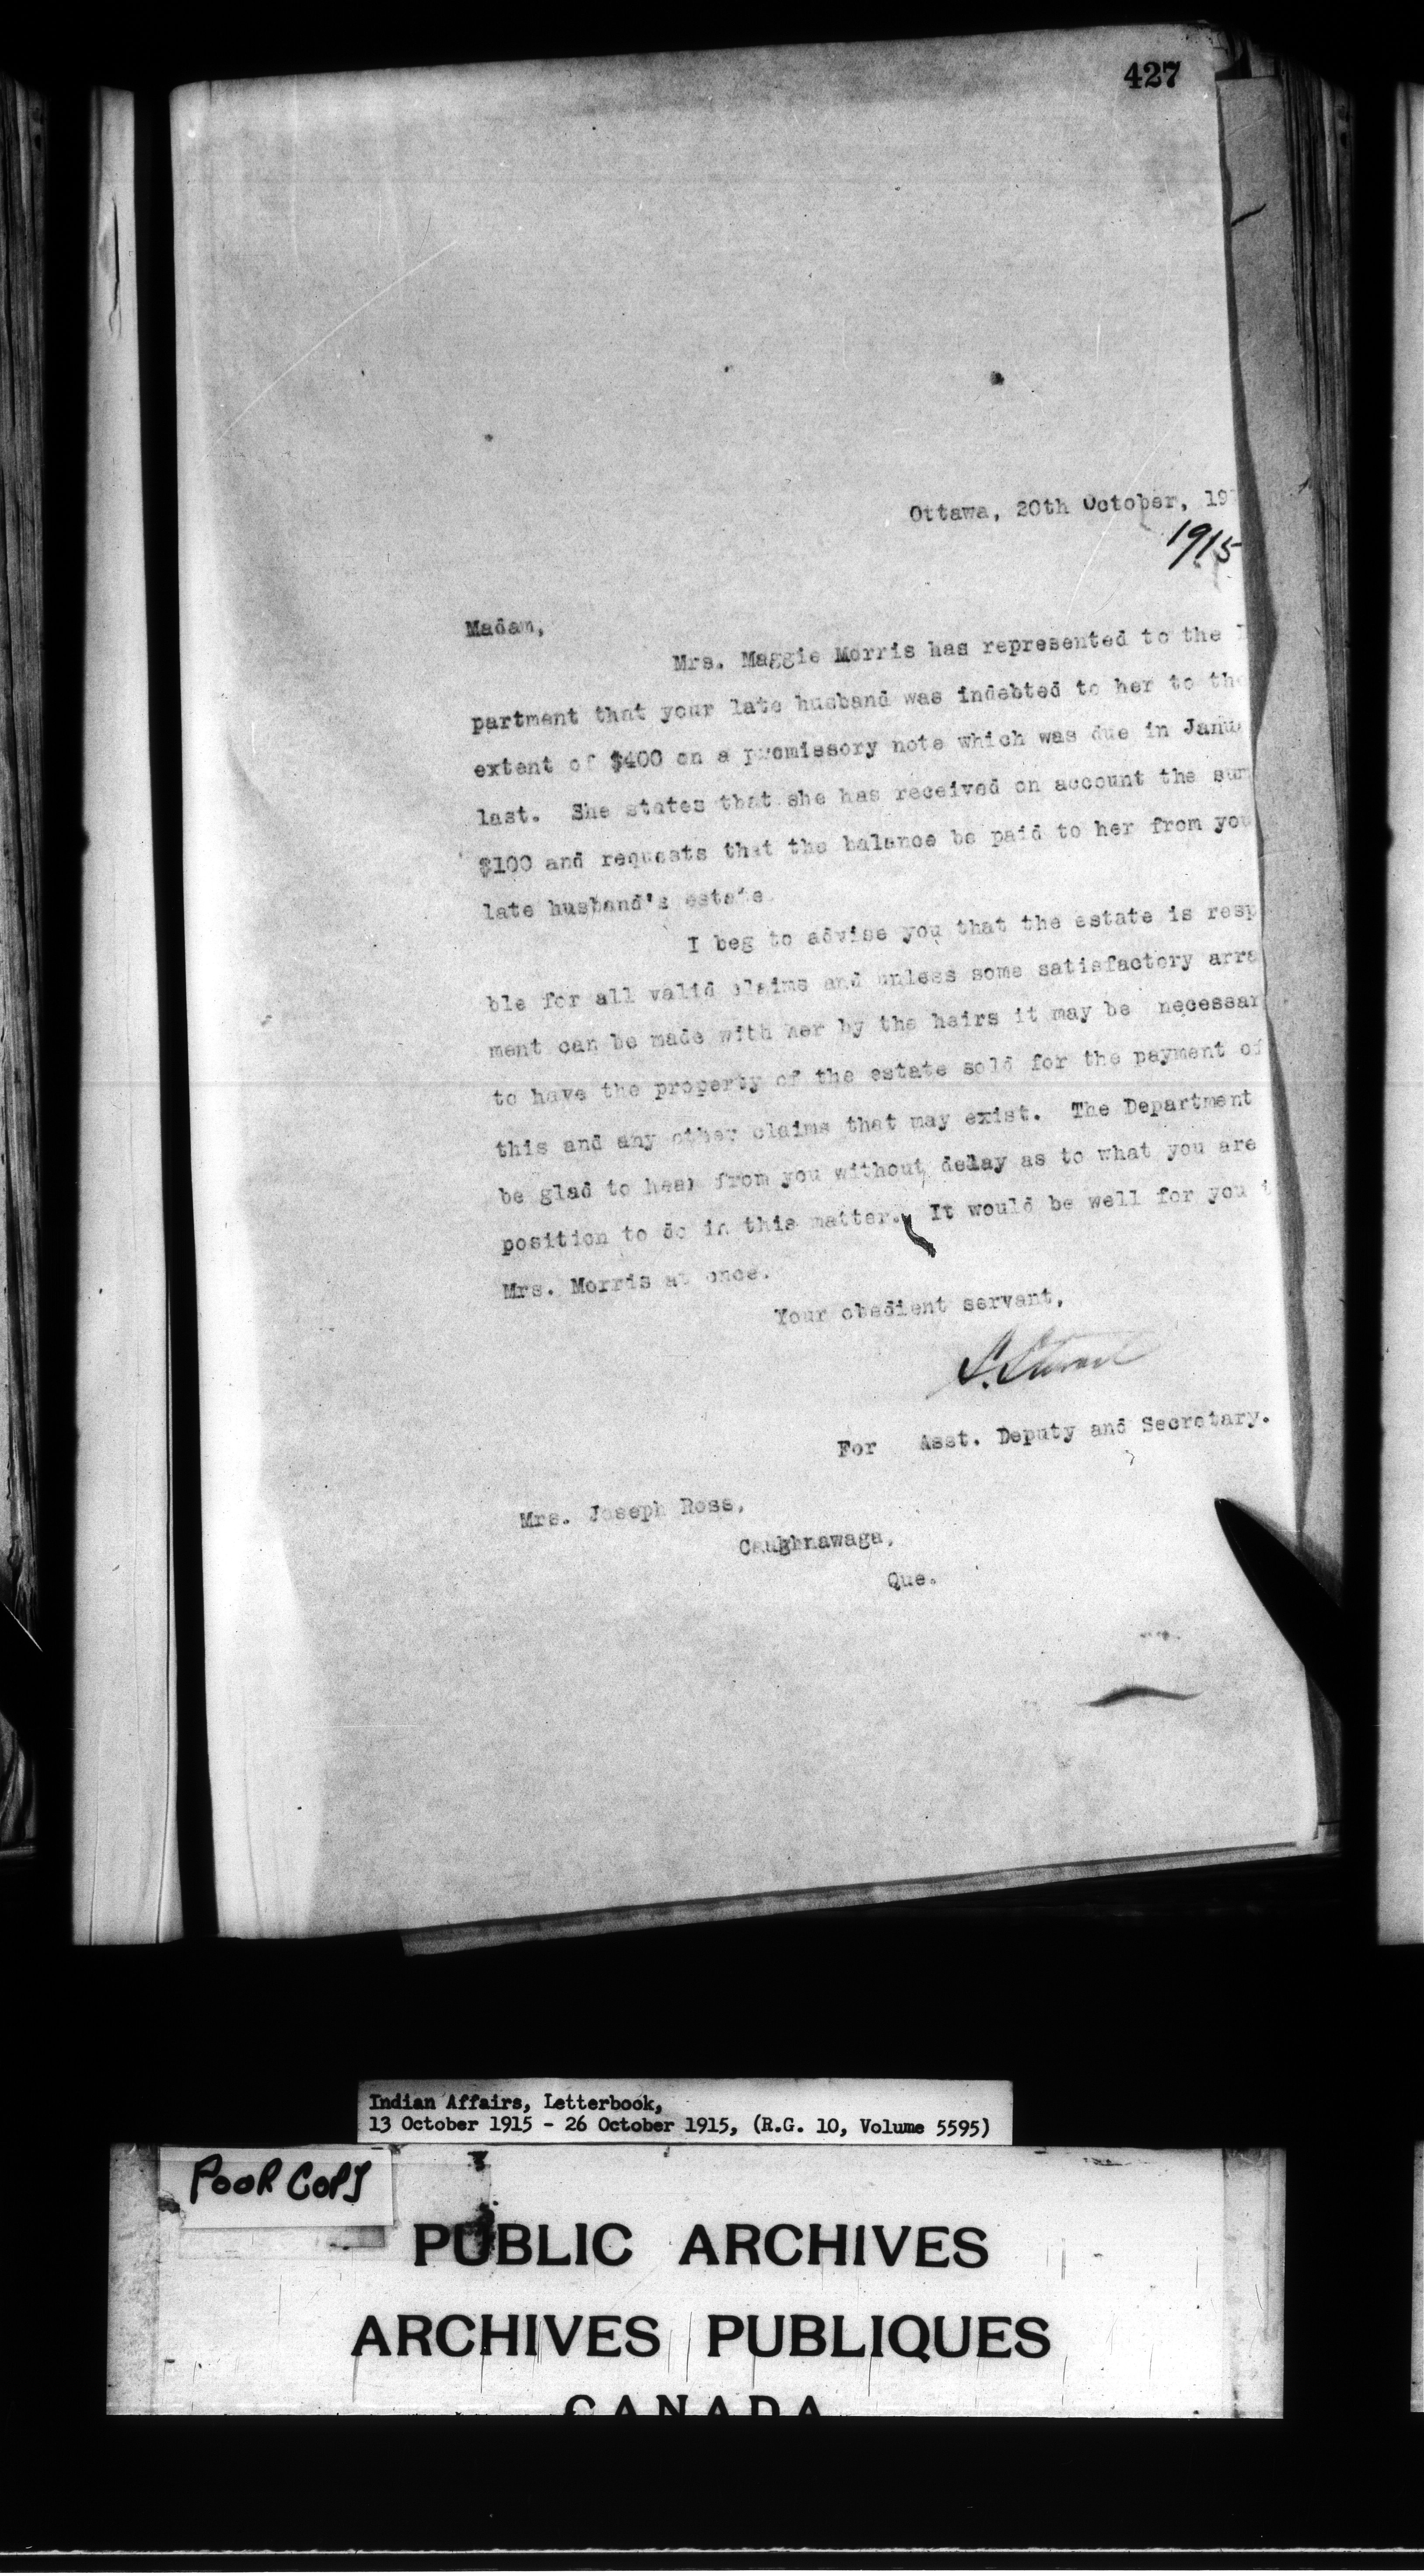 427
Ottawa, 20th October, 19
1915
Madam,
Mrs. Maggie Morris has represented to the
partment that your late husband was indebted to her to the
extent of $400 on a promissory note which was due in Janu
last. She states that she has received on account the sum
$100 and requests that the balance be paid to her from you
late husband's estate.
I beg to advise you that the estate is resp
ble for all valid claims and unless some satisfactory arra
ment can be made with her by the heirs it may be necessar
to have the property of the estate sold for the payment of
this and any other claims that may exist. The Department
be glad to hear from you without delay as to what you are
position to do in this matter. It would be well for you t
Mrs. Morris at once.
Your obedient servant,
S. Stewart
For Asst. Deputy and Secretary.
Mrs. Joseph Ross,
Caughnawaga,
Que.
Indian Affairs, Letterbook,
13 October 1915 - 26 October 1915, (R.G. 10, Volume 5595)
POOR COPY
PUBLIC ARCHIVES
ARCHIVES PUBLIQUES
CANADA